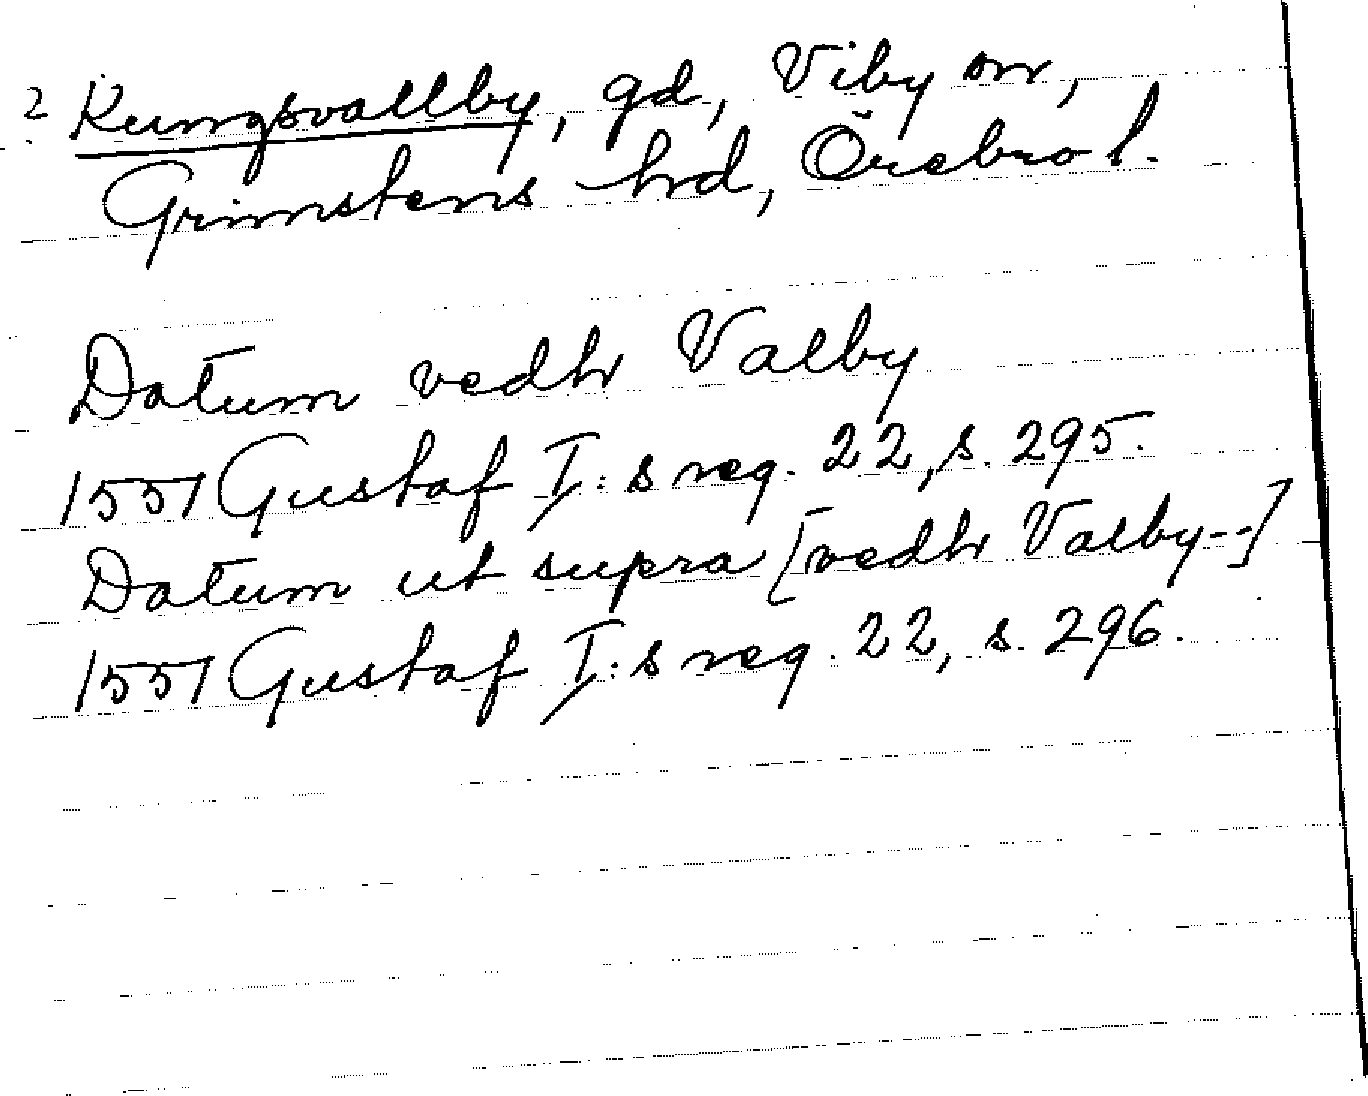 ? Kungsvallby, gd, Viby sn,
Grimstens hrd, Örebro l.
Datum vedhr Valby
1551 Gustaf I:s reg. 22, s. 295.
Datum ut supra [vedhr Valby--]
1551 Gustaf I:s reg. 22, s. 296.